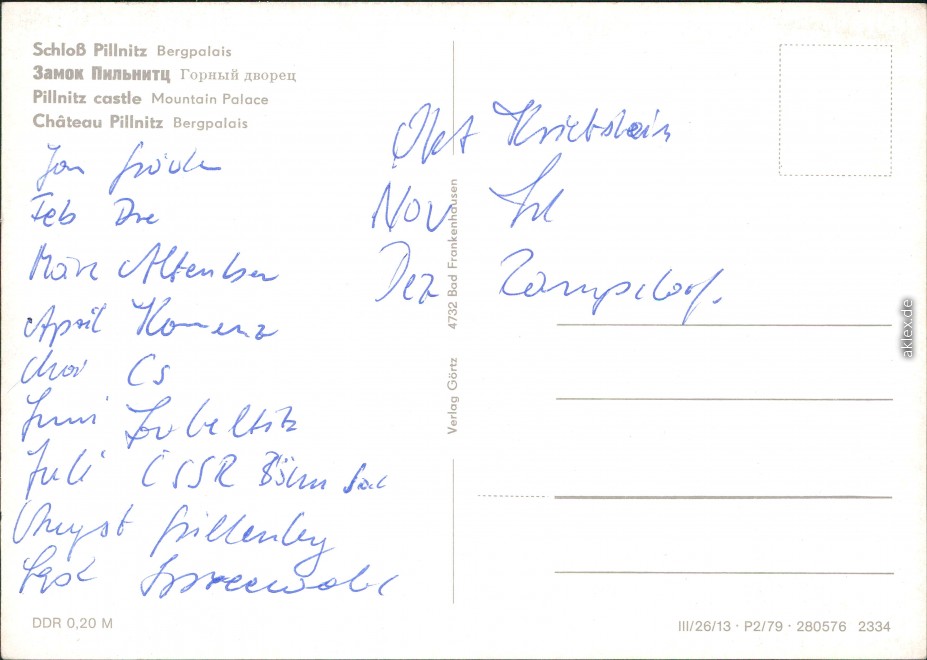 Schloß Pillnitz Bergpalais
Замок Пильнитц Горный дворец
Pillnitz castle Mountain Palace
Château Pillnitz Bergpalais
Jan
Feb
März Altenber
April Kamenz
Mai Cs
Juni
Juli CSSR Böhm
August
Sept Spreewald
Okt Kriebstein
Nov
Dez
Verlag Görtz 4732 Bad Frankenhausen
DDR 0,20 M
III/26/13 · P2/79 · 280576 2334
aklex.de